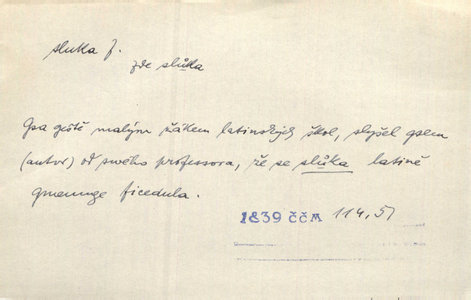 sluka f.
zde slůka
Gsa geště malým žákem latinských škol, slyšel gsem
(autor) od swého professora, že se slůka latině
gmenuge ficedula.
1839 ČČM 114, 51